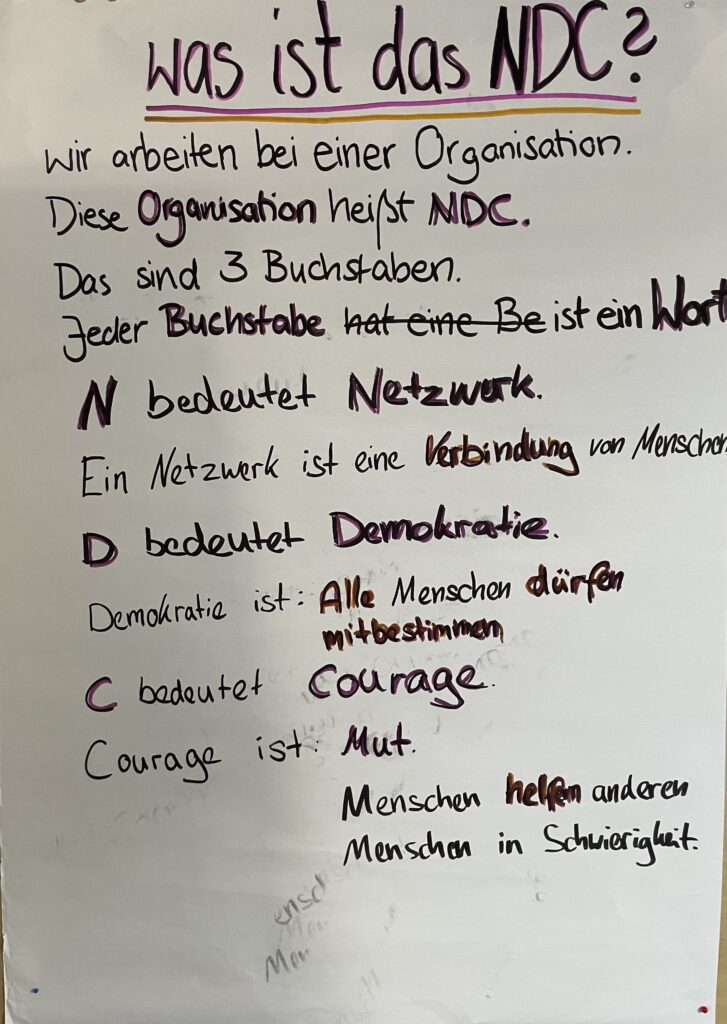 Was ist das NDC?
Wir arbeiten bei einer Organisation.
Diese Organisation heißt NDC.
Das sind 3 Buchstaben.
Jeder Buchstabe hat eine Be ist ein Wort
N bedeutet Netzwerk.
Ein Netzwerk ist eine Verbindung von Menschen
D bedeutet Demokratie.
Demokratie ist: Alle Menschen dürfen
mitbestimmen
C bedeutet Courage.
Courage ist: Mut.
Menschen helfen anderen
Menschen in Schwierigkeit.